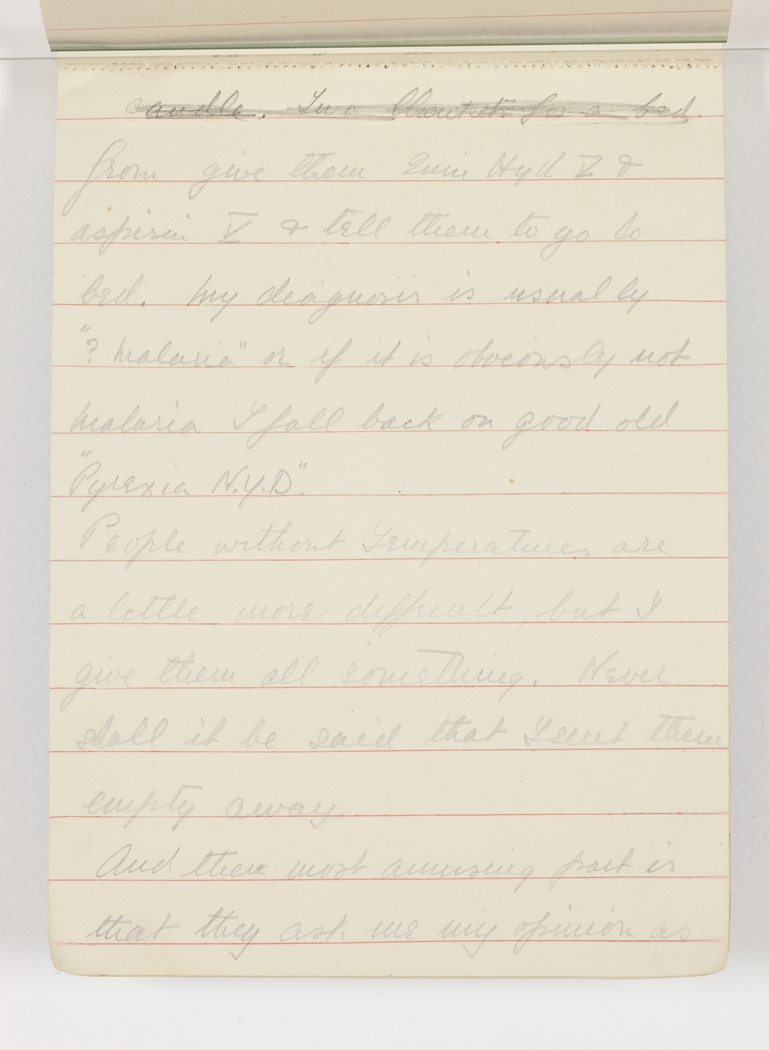 candle. Two blankets for a bed.
from give them Quin Hyd V &
aspirin V & tell them to go to
bed. My diagnosis is usually
"? Malaria" or if it is obviously not
Malaria I fall back on good old
"Pyrexia N.Y.D".
People without Temperatures are
a little more difficult, but I
give them all something. Never
shall it be said that I sent them
empty away.
And then most amusing part is
that they ask me my opinion as